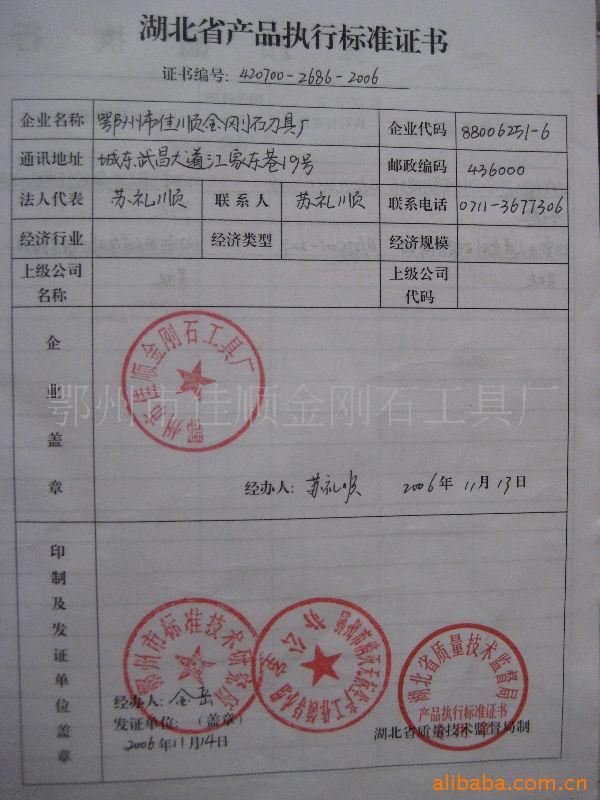 湖北省产品执行标准证书
证书编号: 420700-2686-2006
企业名称 鄂州市佳顺金刚石刀具厂 企业代码 88006251-6
通讯地址 城东武昌大道江家东巷19号 邮政编码 436000
法人代表 苏礼顺 联系人 苏礼顺 联系电话 0711-3677306
经济行业 经济类型 经济规模
上级公司名称 上级公司代码
企业盖章
鄂州市佳顺金刚石工具厂
鄂州市佳顺金刚石工具厂
经办人: 苏礼顺 2006年11月13日
印制及发证单位盖章
鄂州市标准技术研究所
办公室
湖北省质量技术监督局
产品执行标准证书
经办人: 金岳
发证单位: (盖章)
2006年11月14日
湖北省质量技术监督局制
alibaba.com.cn